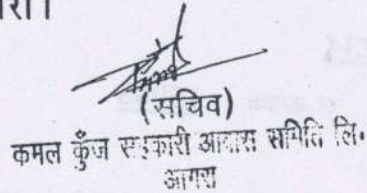 (सचिव)
कमल कुँज सहकारी आवास समिति लि.
आगरा